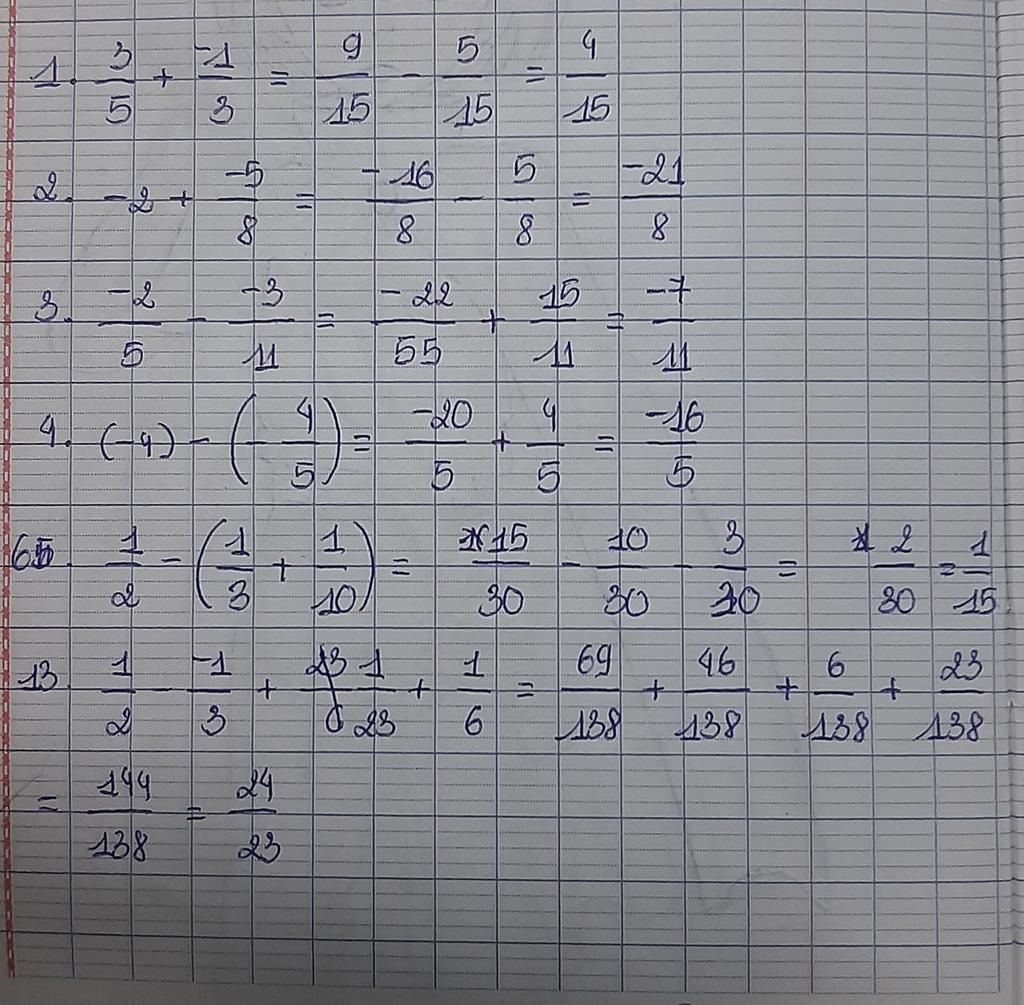 1. 3/5 + -1/3 = 9/15 - 5/15 = 4/15
2. -2 + -5/8 = -16/8 - 5/8 = -21/8
3. -2/5 - -3/11 = -22/55 + 15/11 = -7/11
4. (-4) - (-4/5) = -20/5 + 4/5 = -16/5
6. 1/2 - (1/3 + 1/10) = 15/30 - 10/30 - 3/30 = 2/30 = 1/15
13. 1/2 - -1/3 + 1/23 + 1/6 = 69/138 + 46/138 + 6/138 + 23/138
= 144/138 = 24/23